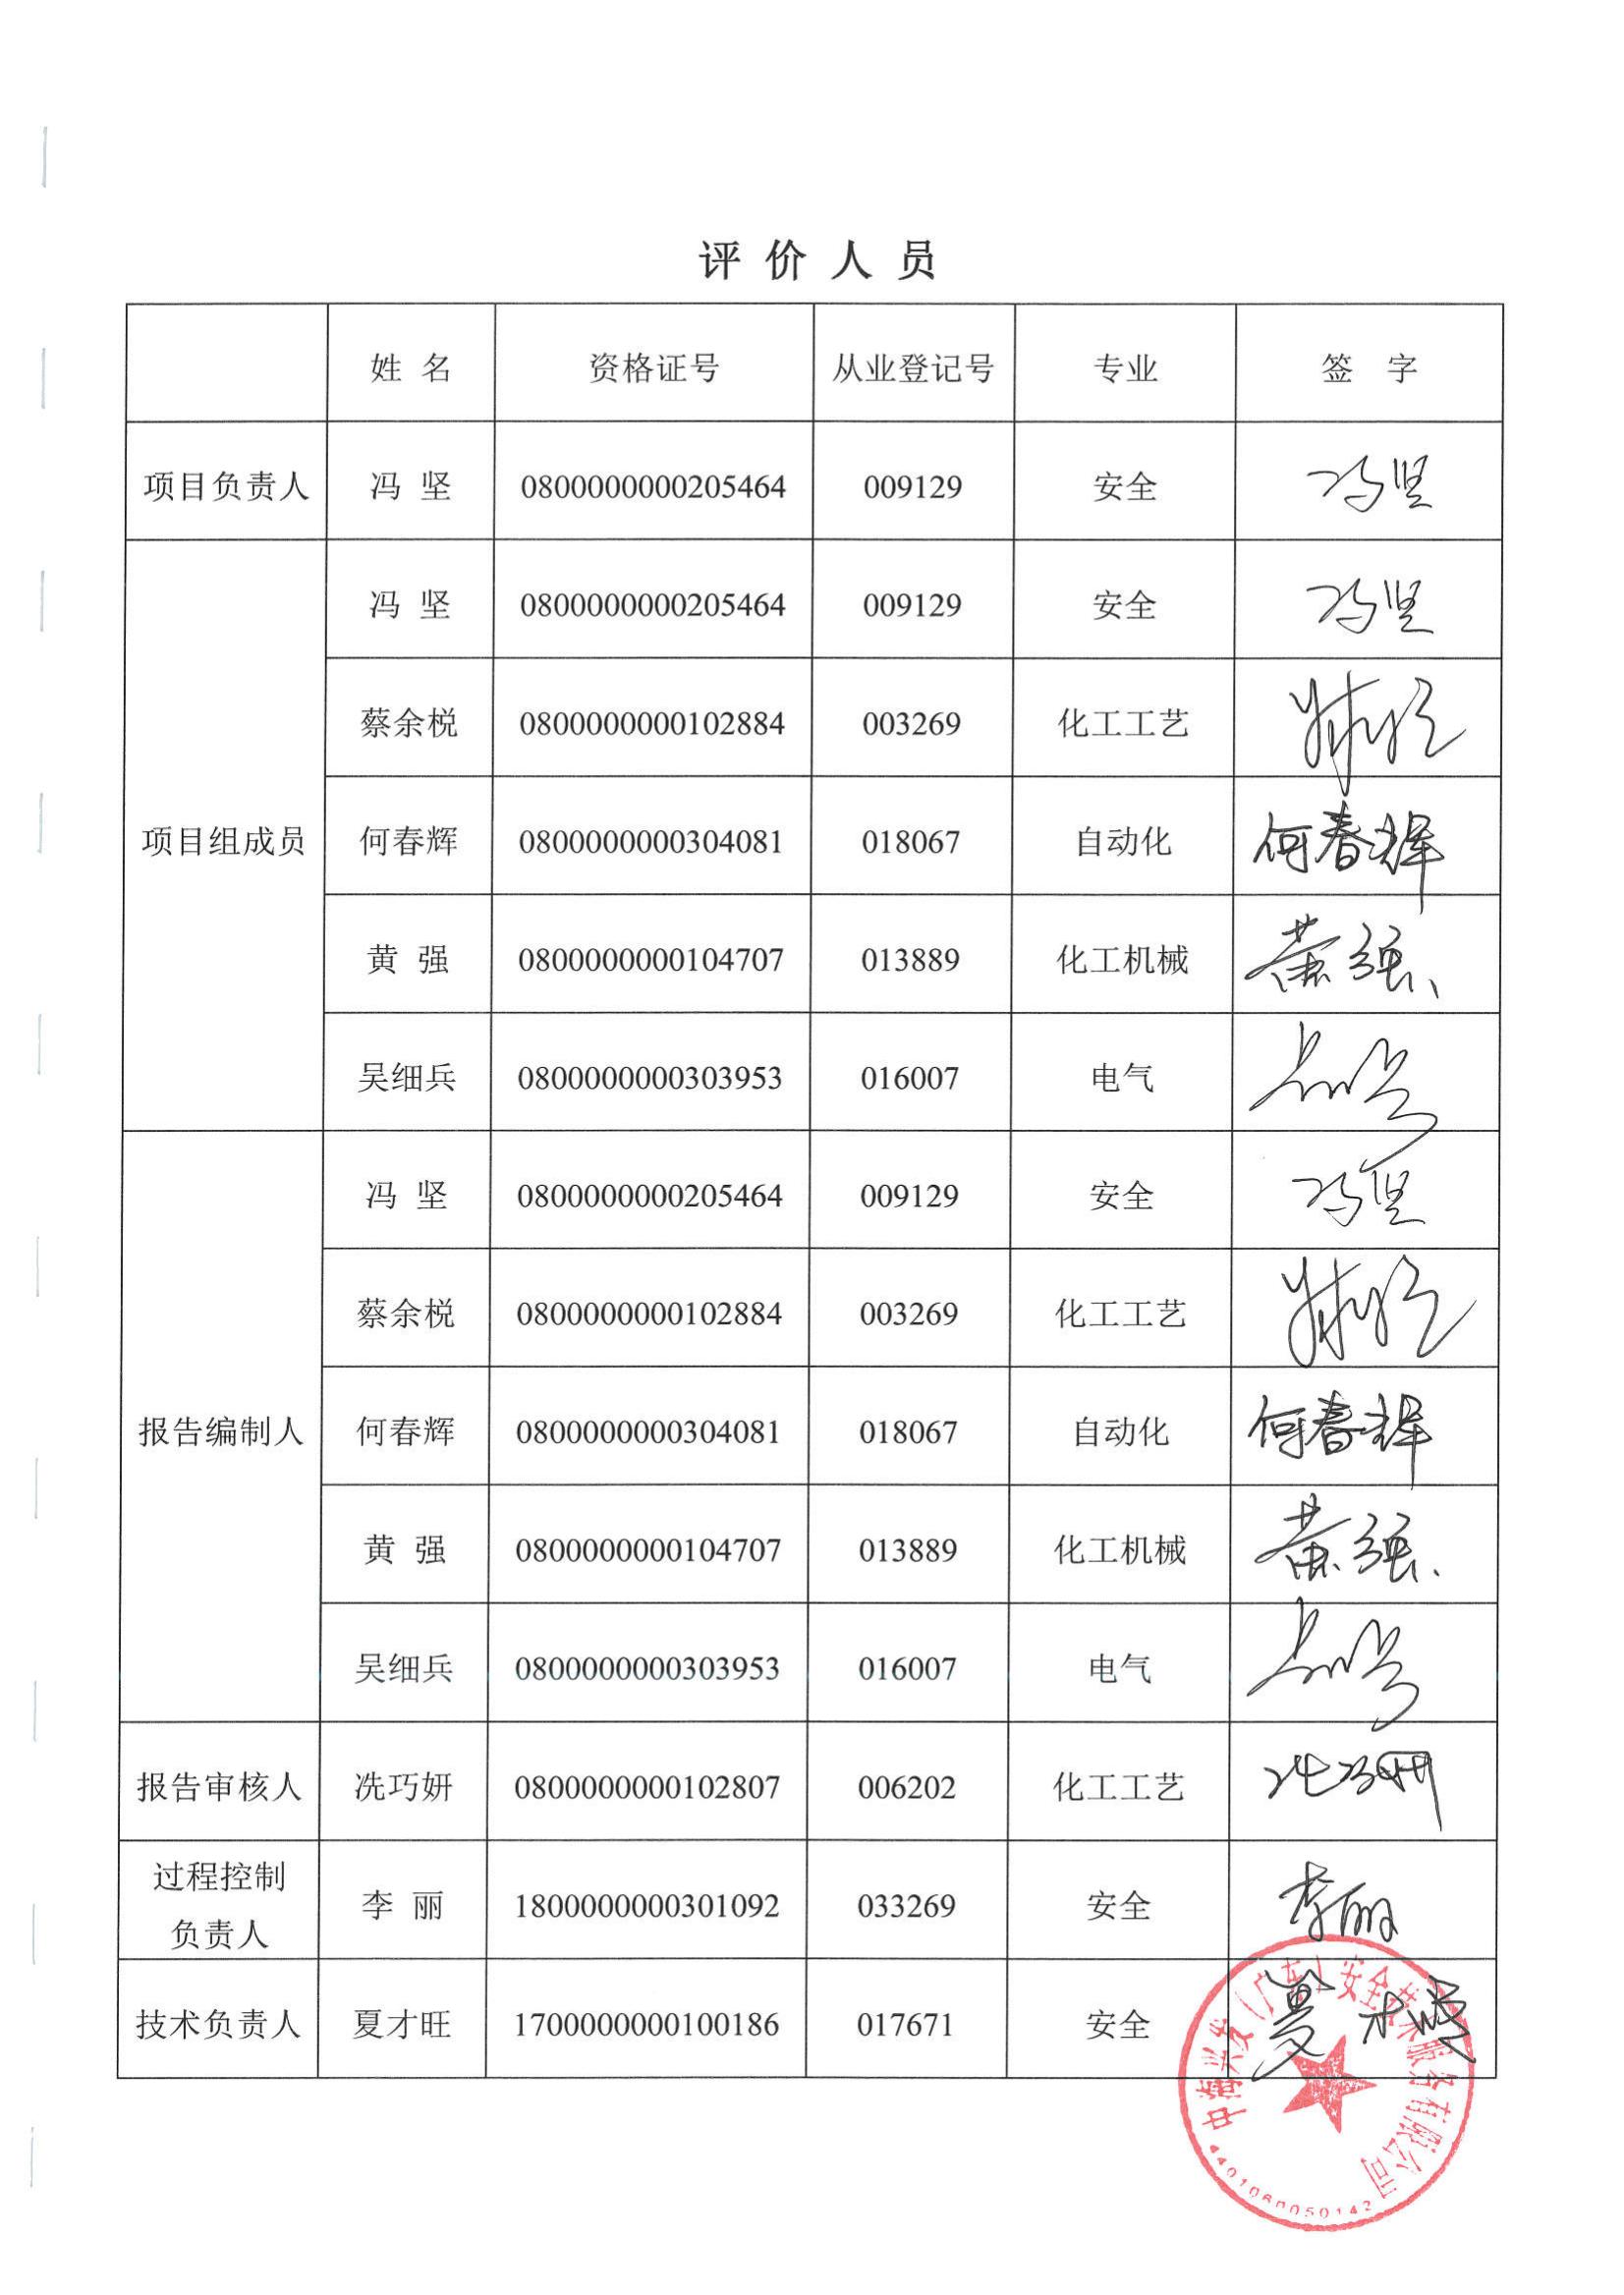 评价人员
姓名 资格证号 从业登记号 专业 签字
项目负责人 冯坚 0800000000205464 009129 安全 冯坚
项目组成员 冯坚 0800000000205464 009129 安全 冯坚
蔡余棁 0800000000102884 003269 化工工艺
何春辉 0800000000304081 018067 自动化 何春辉
黄强 0800000000104707 013889 化工机械 黄强
吴细兵 0800000000303953 016007 电气
报告编制人 冯坚 0800000000205464 009129 安全 冯坚
蔡余棁 0800000000102884 003269 化工工艺
何春辉 0800000000304081 018067 自动化 何春辉
黄强 0800000000104707 013889 化工机械 黄强
吴细兵 0800000000303953 016007 电气
报告审核人 冼巧妍 0800000000102807 006202 化工工艺
过程控制
负责人 李丽 1800000000301092 033269 安全 李丽
技术负责人 夏才旺 1700000000100186 017671 安全 夏才旺
中海兴发（广东）安全技术服务有限公司
4401060050142